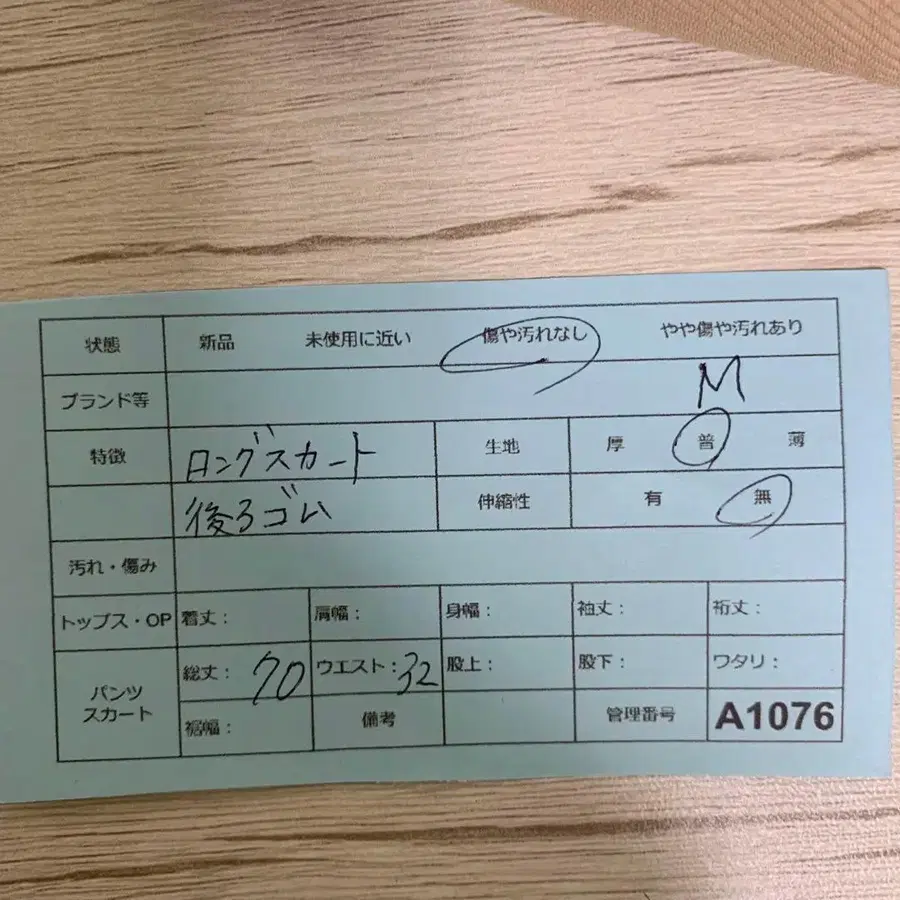 状態 新品 未使用に近い 傷や汚れなし やや傷や汚れあり
ブランド等 M
特徴 ロングスカート 生地 厚 普 薄
後ろゴム 伸縮性 有 無
汚れ・傷み
トップス・OP 着丈: 肩幅: 身幅: 袖丈: 裄丈:
パンツ スカート 総丈: 70 ウエスト: 32 股上: 股下: ワタリ:
裾幅: 備考 管理番号 A1076